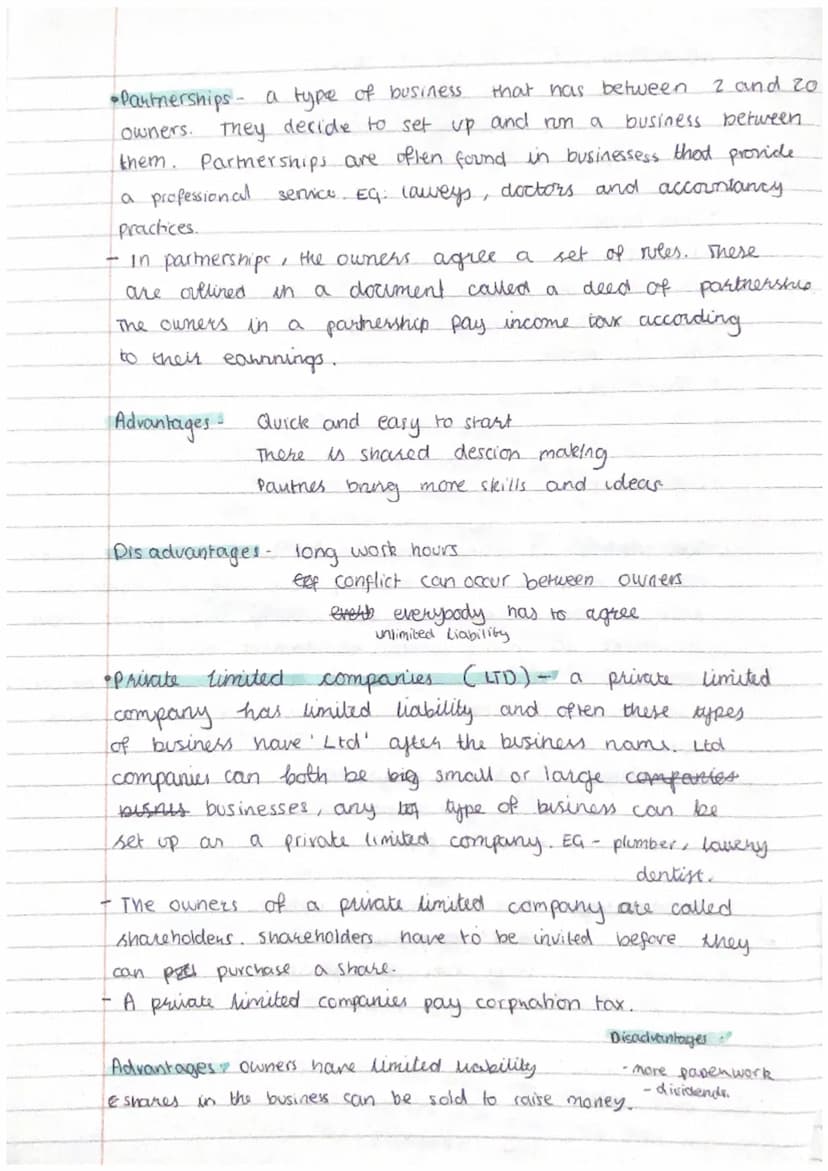 •Partnerships - a type of business that has between 2 and 20
owners. They decide to set up and run a business between
them. Partnerships are often found in businessess that provide
a professional service. EG: lawyeys, doctors and accountancy
practices.
- In partnerships, the owners agree a set of rules. These
are outlined in a document called a deed of partnership
The owners in a partnership pay income tax according
to their earnnings.
Advantages - Quick and easy to start
There is shared descion making
Partnes bring more skills and ideas
Disadvantages - long work hours
conflict can occur between owners
everybody has to agree
unlimited Liability
•Private limited companies (LTD) - a private limited
company has limited liability and often these types
of business have 'Ltd' after the business name. Ltd
companies can both be big small or large companies
businesses, any type of business can be
set up as a private limited company. EG - plumber,
dentist.
- The owners of a private limited company are called
shareholders. Shareholders have to be invited before they
can purchase a share.
- A private limited companies pay corpration tax.
Disadvantages -
Advantages - owners have limited liability - more paperwork
shares in the business can be sold to raise money. - dividends.